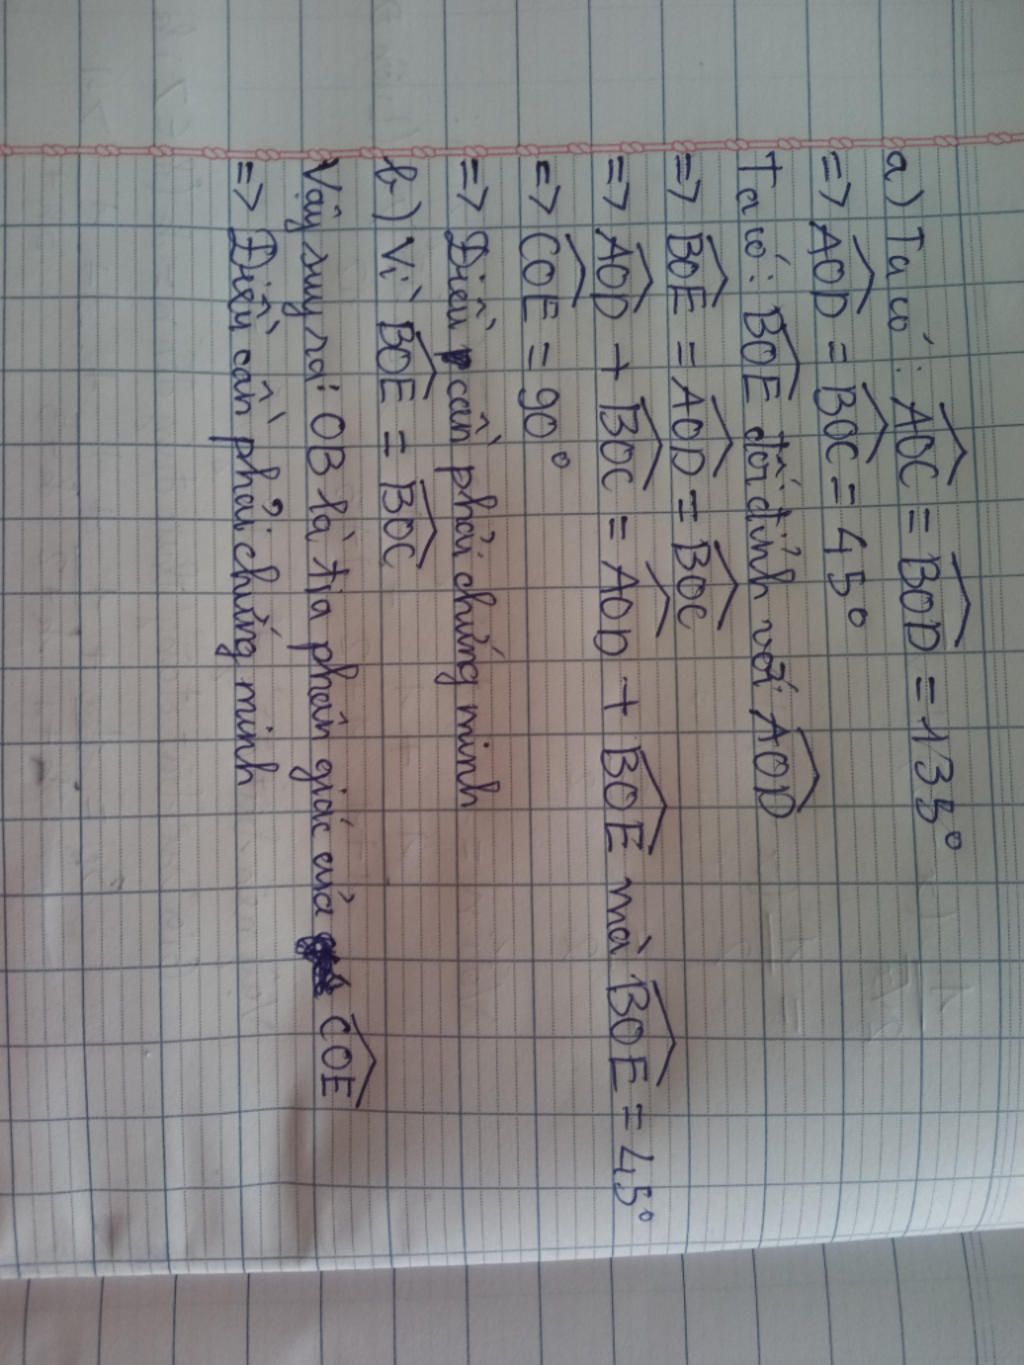 a) Ta có: AOC = BOD = 135°
=> AOD = BOC = 45°
Ta có: BOE đối đỉnh với AOD
=> BOE = AOD = BOC
=> AOD + BOC = AOD + BOE mà BOE = 45°
=> COE = 90°
=> Điều cần phải chứng minh
b) Vì BOE = BOC
Vậy suy ra: OB là tia phân giác của COE
=> Điều cần phải chứng minh